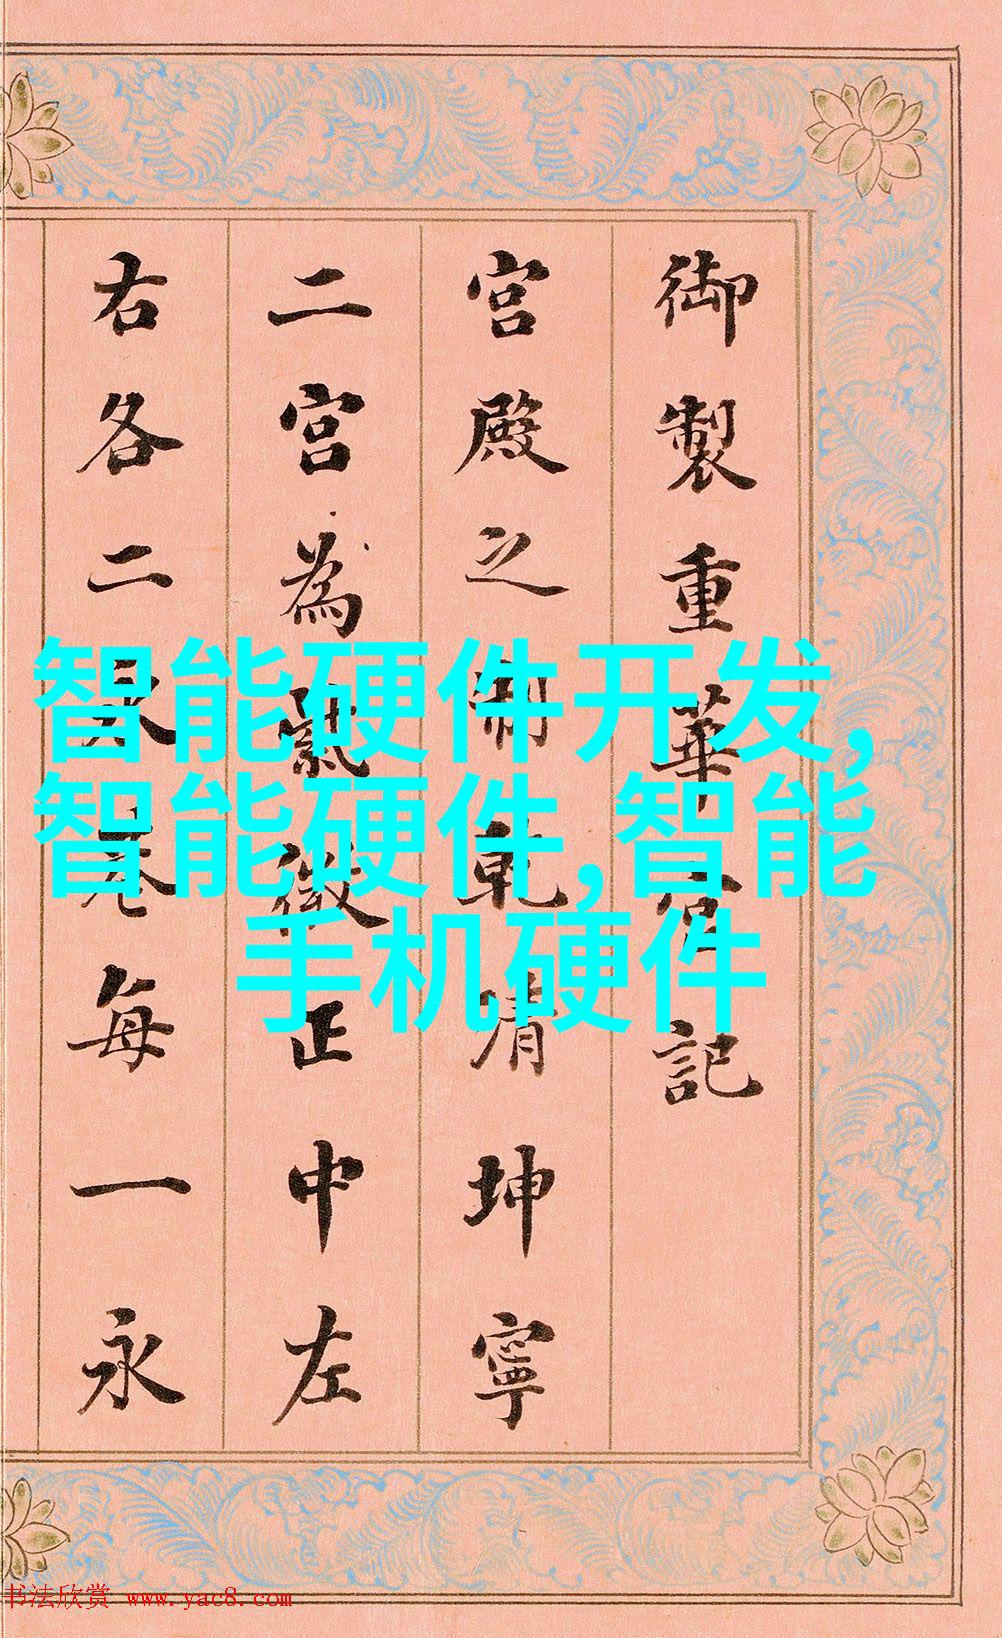 御製重華宮記
宮殿之制乾清坤寧
二宮為紫微正中左
右各二永巷每一永
智能硬件开发,
智能硬件,智能
手机硬件
书法欣赏 www.yac8.com